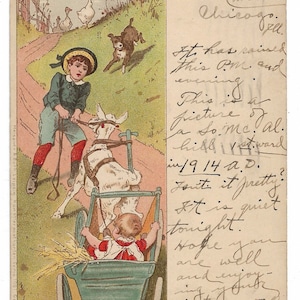 Chicago.
It has rained
this PM and
evening.
This is a
picture of
a So. Mc. Al.
in 1914 A.D.
Isn't it pretty?
It is quiet
tonight.
Hope you
are well
and enjoy-
ing your